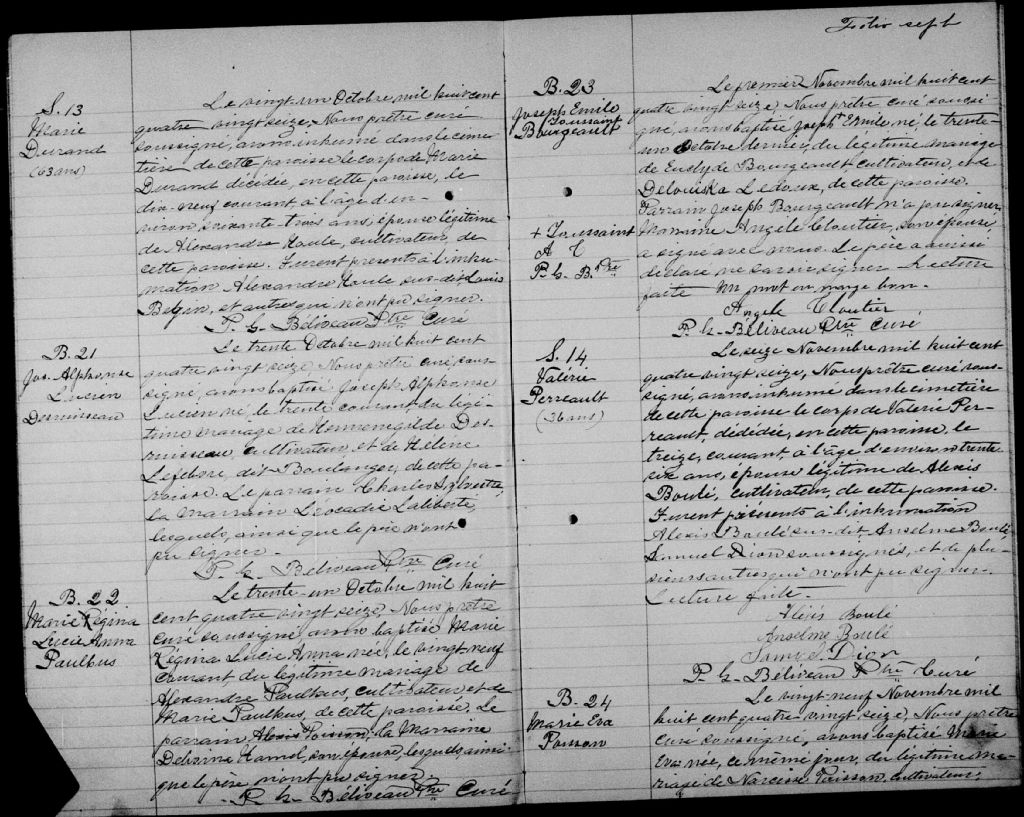 S. 13
Marie
Durand
(63 ans)
Le vingt-un Octobre mil huit cent
quatre vingt seize, Nous prêtre curé
soussigné, avons inhumé dans le cime
tière de cette paroisse le corps de Marie
Durand décédée, en cette paroisse, le
dix-neuf courant à l'âge d'en-
viron soixante trois ans, épouse légitime
de Alexandre Houle, cultivateur, de
cette paroisse. Furent présents à l'inhu-
mation Alexandre Houle sus-dit, Louis
et autres qui n'ont pu signer.
P. H. Béliveau Ptre Curé
B. 21
Jos. Alphonse
Lucien
Desruisseau
Le trente Octobre mil huit cent
quatre vingt seize, Nous prêtre curé sous-
signé, avons baptisé Joseph Alphonse
Lucien, né, le trente courant, du légi-
time mariage de Hermenegilde Des-
ruisseau, cultivateur, et de Hélène
Lefebvre, dit Boulanger, de cette pa-
roisse. Le parrain Charles Sylvestre,
la marraine Léocadie Laliberté,
lesquels, ainsi que le père n'ont
pu signer.
P. H. Béliveau Ptre Curé
B. 22
Marie Régina
Lucie Anna
Paulhus
Le trente-un Octobre mil huit
cent quatre vingt seize, Nous prêtre
curé soussigné avons baptisé Marie
Régina Lucie Anna née, le vingt neuf
courant du légitime mariage de
Alexandre Paulhus, cultivateur et de
Marie Paulhus, de cette paroisse. Le
parrain Alexis Poisson, la Marraine
Hamel, son épouse, lesquels, ainsi
que le père n'ont pu signer.
P. H. Béliveau Ptre Curé
Folio sept
B. 23
Joseph Emile
Toussaint
Bourgeault
+ Toussaint
A C
P. H. B. Ptre
Le premier Novembre mil huit cent
quatre vingt seize, Nous prêtre curé soussi
gné, avons baptisé Joseph + Emile, né, le trente-
un Octobre dernier, du légitime mariage
de Bourgeault, cultivateur, et de
Ledoux, de cette paroisse.
Parrain Joseph Bourgeault n'a pu signer,
Marraine Angèle Cloutier, son épouse,
a signé avec nous. Le père a aussi
déclaré ne savoir signer. Lecture
faite. Un mot en marge bon.
Angele Cloutier
P. H. Béliveau Ptre Curé
S. 14
Valérie
Perreault
(36 ans)
Le seize Novembre mil huit cent
quatre vingt seize, Nous prêtre curé sous-
signé, avons inhumé dans le cimetière
de cette paroisse le corps de Valérie Per-
reault, dédédée, en cette paroisse, le
treize, courant, à l'âge d'environ trente-
six ans, épouse légitime de Alexis
Boulé, cultivateur, de cette paroisse.
Furent présents à l'inhumation
Alexis Boulé sus-dit, Anselme Boulé,
Samuel Dion soussignés, et de plu-
sieurs autres qui n'ont pu signer.
Lecture faite.
Alexis Boulé
Anselme Boulé
Samuel Dion
P. H. Béliveau Ptre Curé
B. 24
Marie Eva
Poisson
Le vingt-neuf Novembre mil
huit cent quatre-vingt seize, Nous prêtre
curé soussigné, avons baptisé Marie
Eva née, ce même jour, du légitime ma-
riage de Narcisse Poisson, cultivateur,